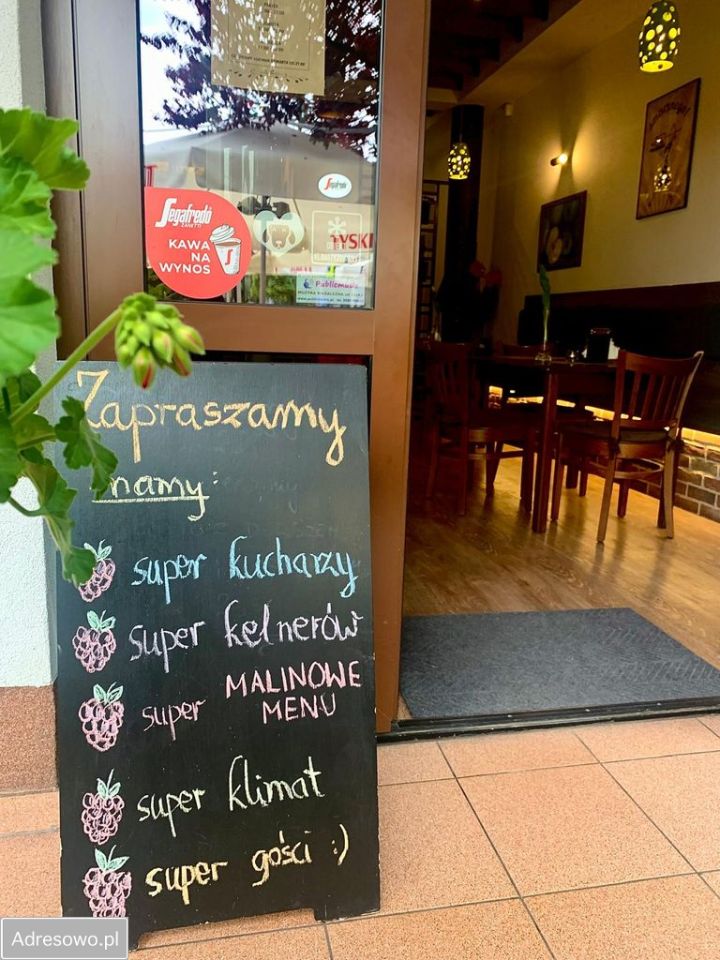 Segafredo
ZANETTI
KAWA
NA
WYNOS
Segafredo
TYSKI
Zapraszamy
mamy:
super kucharzy
super kelnerów
super MALINOWE
MENU
super klimat
super gości :)
Adresowo.pl